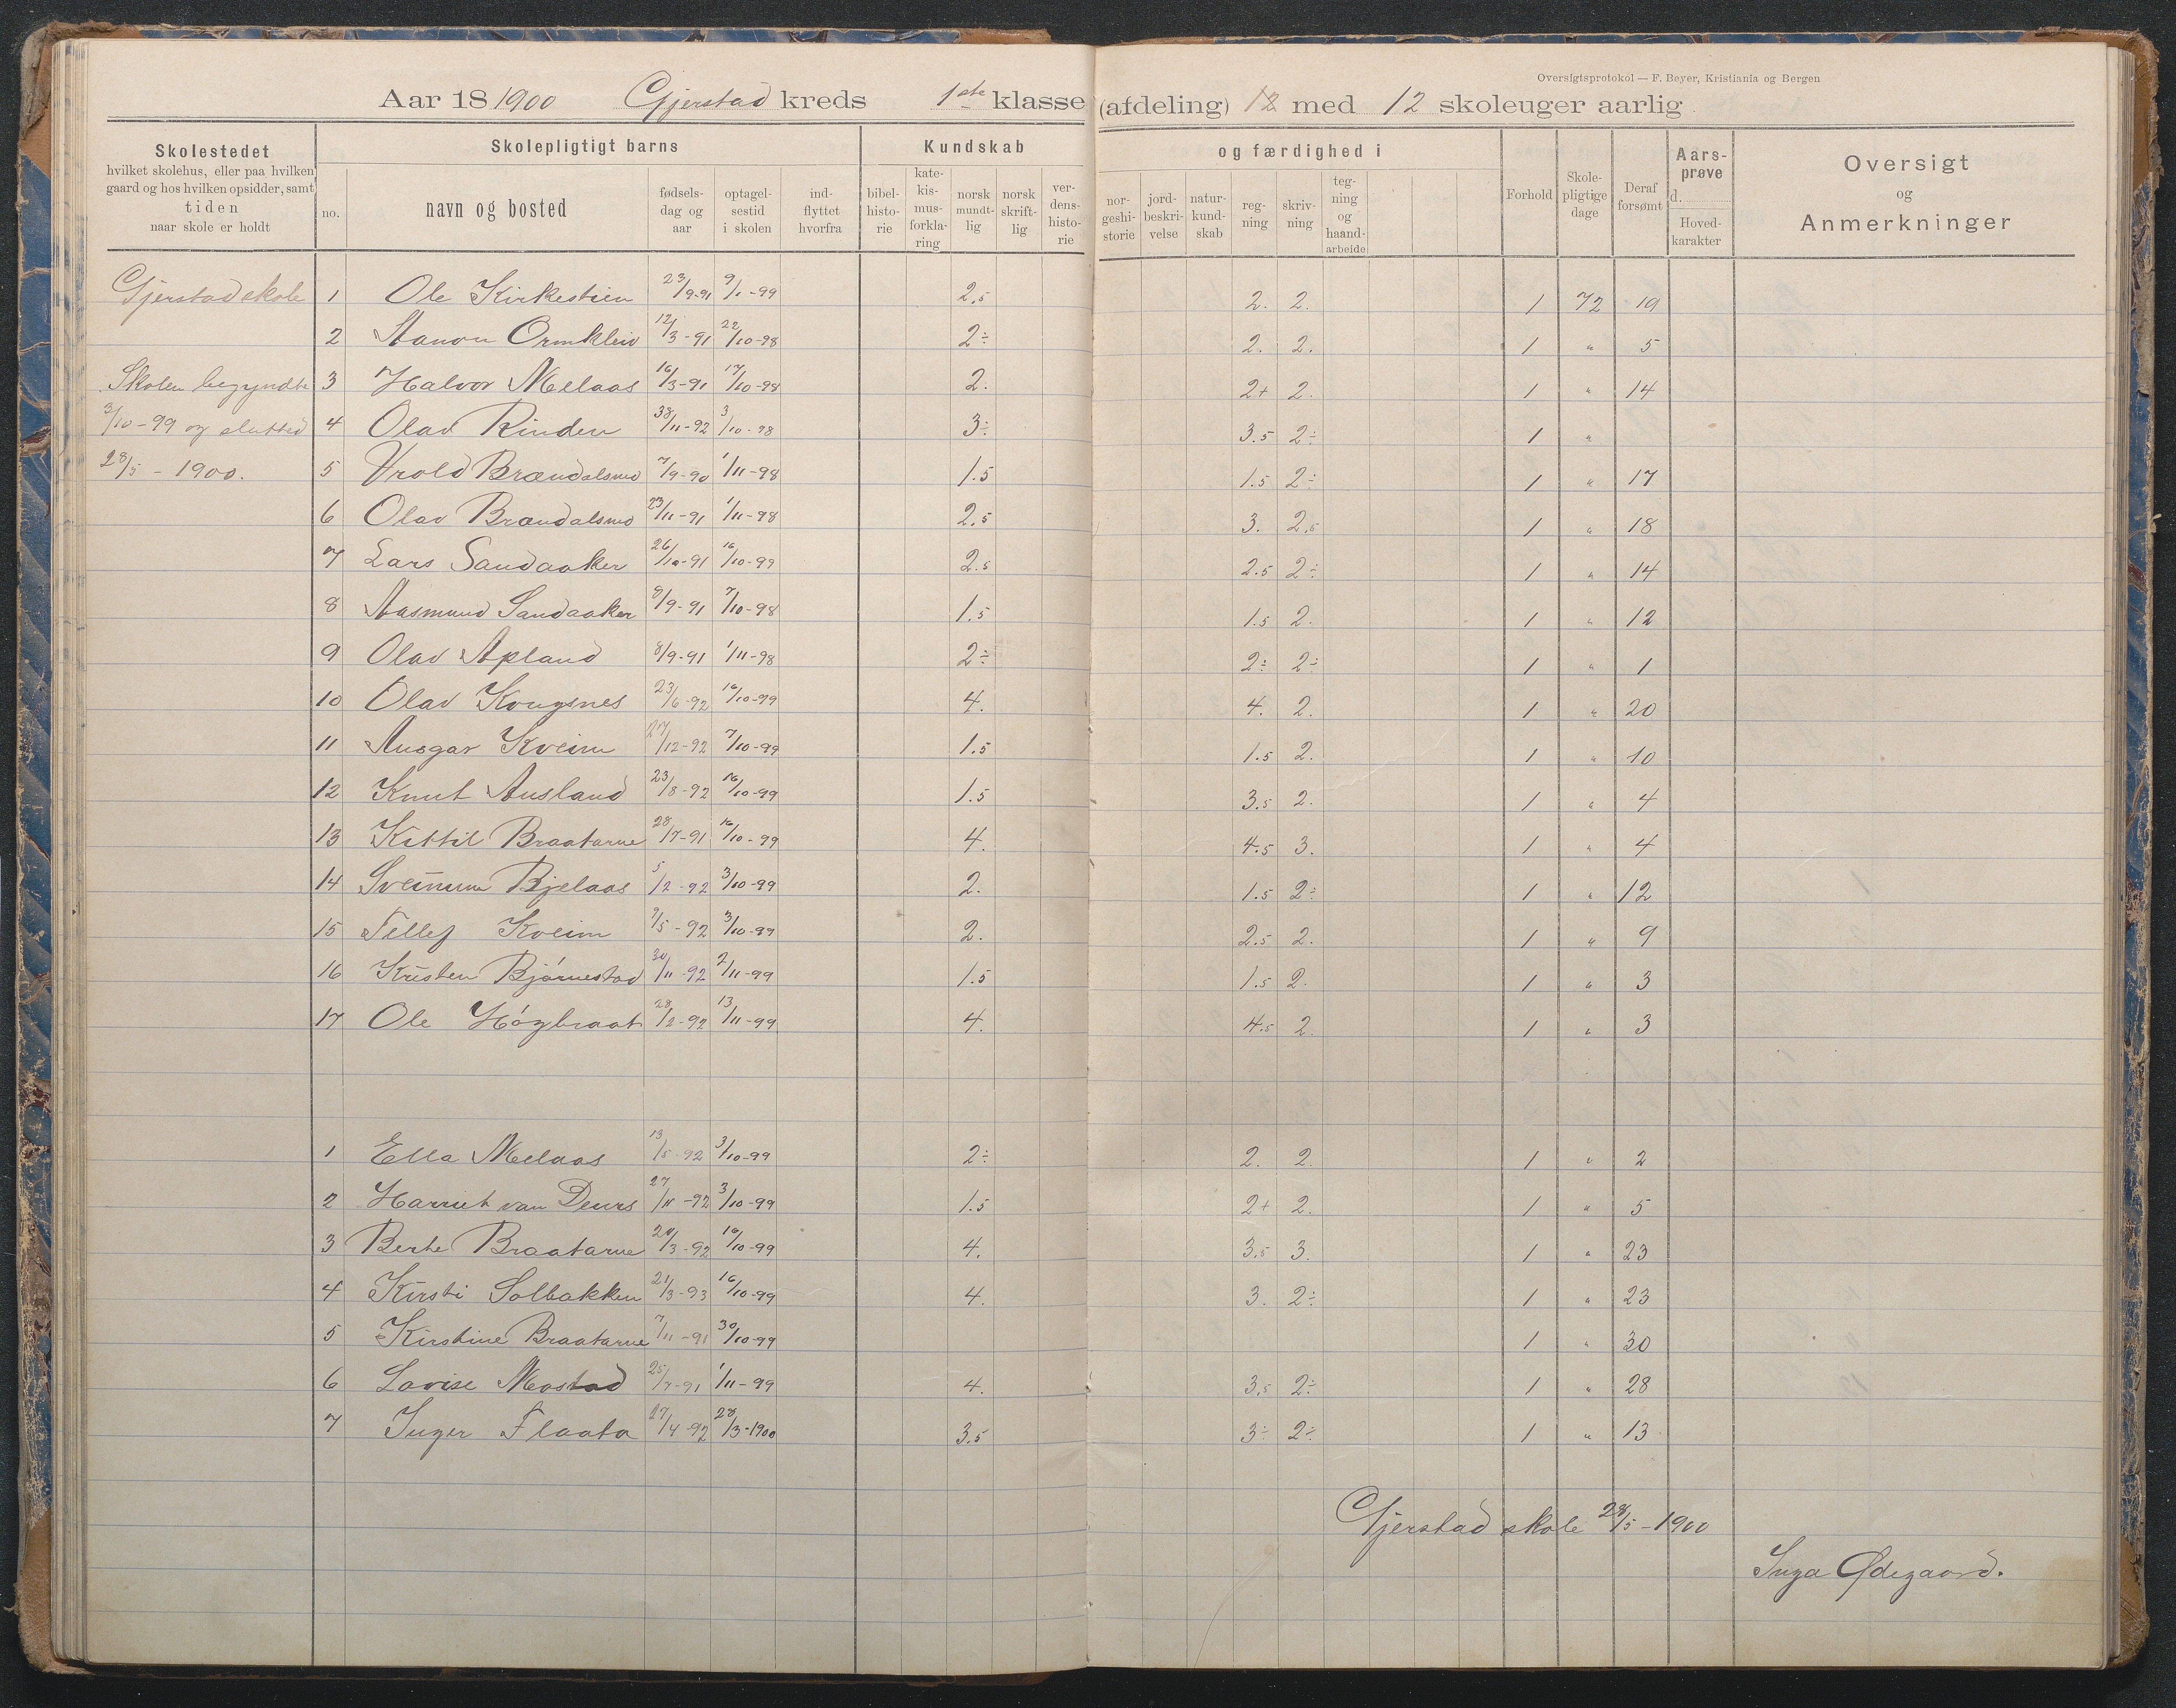 Oversigtsprotokol — F. Beyer, Kristiania og Bergen
Aar 18 1900 Gjerstad kreds 1ste klasse (afdeling) 12 med 12 skoleuger aarlig
Skolestedet
hvilket skolehus, eller paa hvilken
gaard og hos hvilken opsidder, samt
tiden
naar skole er holdt
Skolepligtigt barns
no.
navn og bosted
fødsels-
dag og
aar
optagel-
sestid
i skolen
ind-
flyttet
hvorfra
Kundskab
bibel-
histo-
rie
kate-
kis-
mus-
forkla-
ring
norsk
mundt-
lig
norsk
skrift-
lig
ver-
dens-
histo-
rie
og færdighed i
nor-
geshi-
storie
jord-
beskri-
velse
natur-
kund-
skab
reg-
ning
skriv-
ning
teg-
ning
og
haand-
arbeide
Forhold
Skole-
pligtige
dage
Deraf
forsømt
Aars-
prøve
d.
Hoved-
karakter
Oversigt
og
Anmerkninger
Gjerstad skole 1 Ole Kirkestien 23/9-91 9/1-99 2,5 2. 2. 1 72 19
2 Aanon Ormkleiv 12/3-91 22/10-98 2÷ 2. 2. 1 " 5
Skolen begyndte 3 Halvor Melaas 16/3-91 17/10-98 2. 2+ 2. 1 " 14
3/10-99 og slutted 4 Olav Rinden /11-92 3/10-98 3÷ 3.5 2÷ 1 "
28/5-1900. 5 Vrold Brændalsmo 7/9-90 1/11-98 1.5 1.5 2÷ 1 " 17
6 Olav Brændalsmo 23/11-91 1/11-98 2,5 3. 2,5 1 " 18
7 Lars Sandaaker 26/10-91 16/10-99 2.5 2.5 2÷ 1 " 14
8 Aasmund Sandaaker 8/9-91 7/10-98 1.5 1.5 2. 1 " 12
9 Olav Apland 8/9-91 1/11-98 2÷ 2÷ 2÷ 1 " 1
10 Olav Kongsnes 23/6-92 16/10-99 4. 4. 2. 1 " 20
11 Ansgar Kveim 27/12-92 7/10-99 1.5 1.5 2. 1 " 10
12 Knut Ausland 23/8-92 16/10-99 1.5 3.5 2. 1 " 4
13 Kittil Braatarne 28/7-91 16/10-99 4. 4.5 3. 1 " 4
14 Sveinum Bjelaas 5/2-92 3/10-99 2. 1.5 2÷ 1 " 12
15 Tellef Kveim 9/5-92 3/10-99 2. 2.5 2. 1 " 9
16 Kristen Bjørnestad 30/11-92 2/11-99 1.5 1.5 2. 1 " 3
17 Ole Høgbraat 28/2-92 13/11-99 4. 4.5 2. 1 " 3
1 Ella Melaas 13/5-92 3/10-99 2÷ 2. 2. 1 " 2
2 Harriet van Deurs 27/11-92 3/10-99 1.5 2+ 2. 1 " 5
3 Berte Braatarne /3-92 /10-99 4. 3.5 3. 1 " 23
4 Kirsti Solbakken 21/3-93 16/10-99 4. 3. 2÷ 1 " 23
5 Kirstine Braatarne 7/11-91 30/10-99 1 " 30
6 Lovise Mostad 25/7-91 1/11-99 4. 3.5 2÷ 1 " 28
7 Inger Flaata 27/4-92 28/3-1900 3.5 3÷ 2÷ 1 " 13
Gjerstad skole 28/5-1900
Inga Ødegaard.